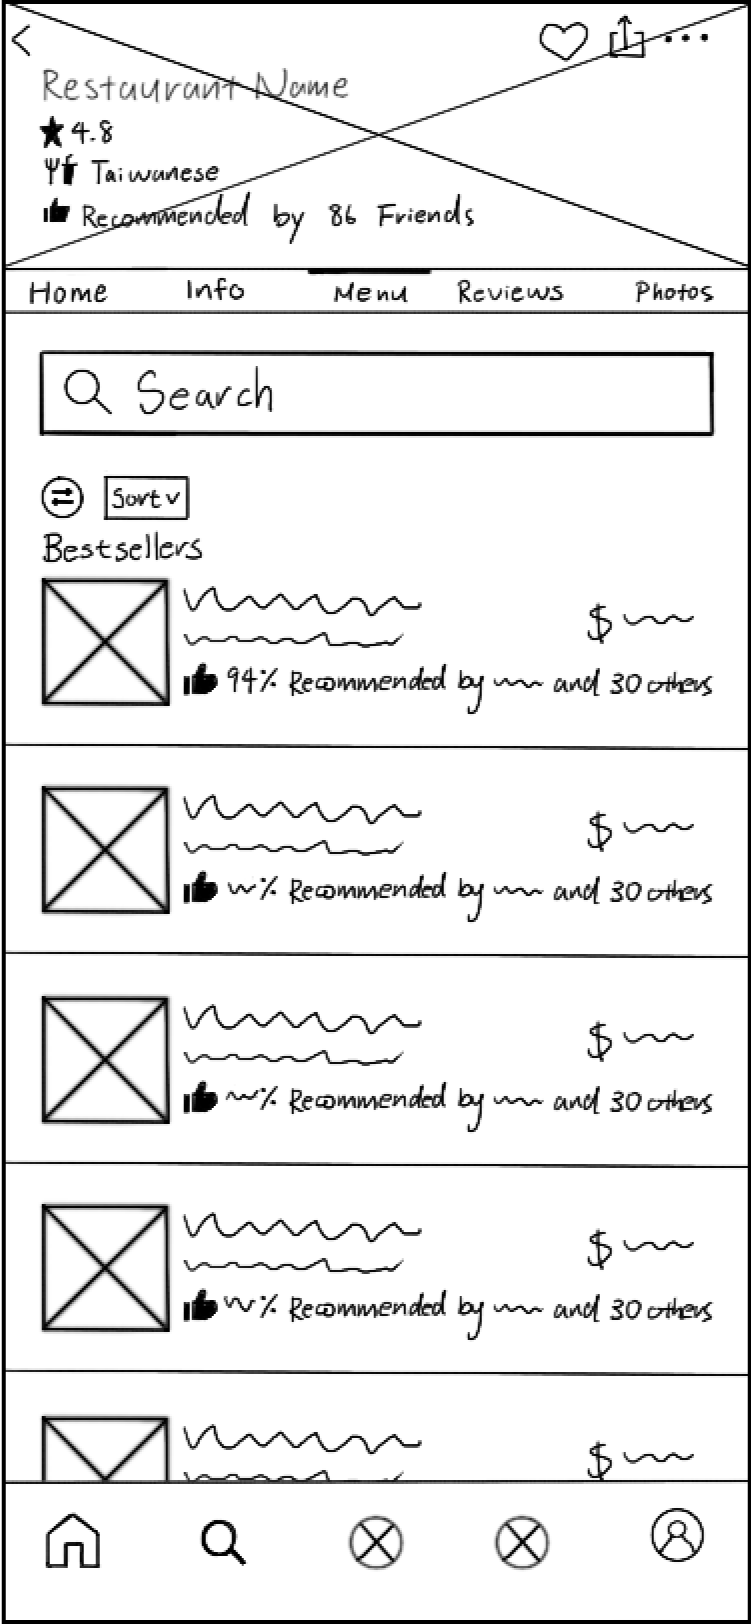 Restaurant Name
4.8
Taiwanese
Recommended by 86 Friends
Home Info Menu Reviews Photos
Search
Sort
Bestsellers
$
94% Recommended by and 30 others
$
% Recommended by and 30 others
$
% Recommended by and 30 others
$
% Recommended by and 30 others
$